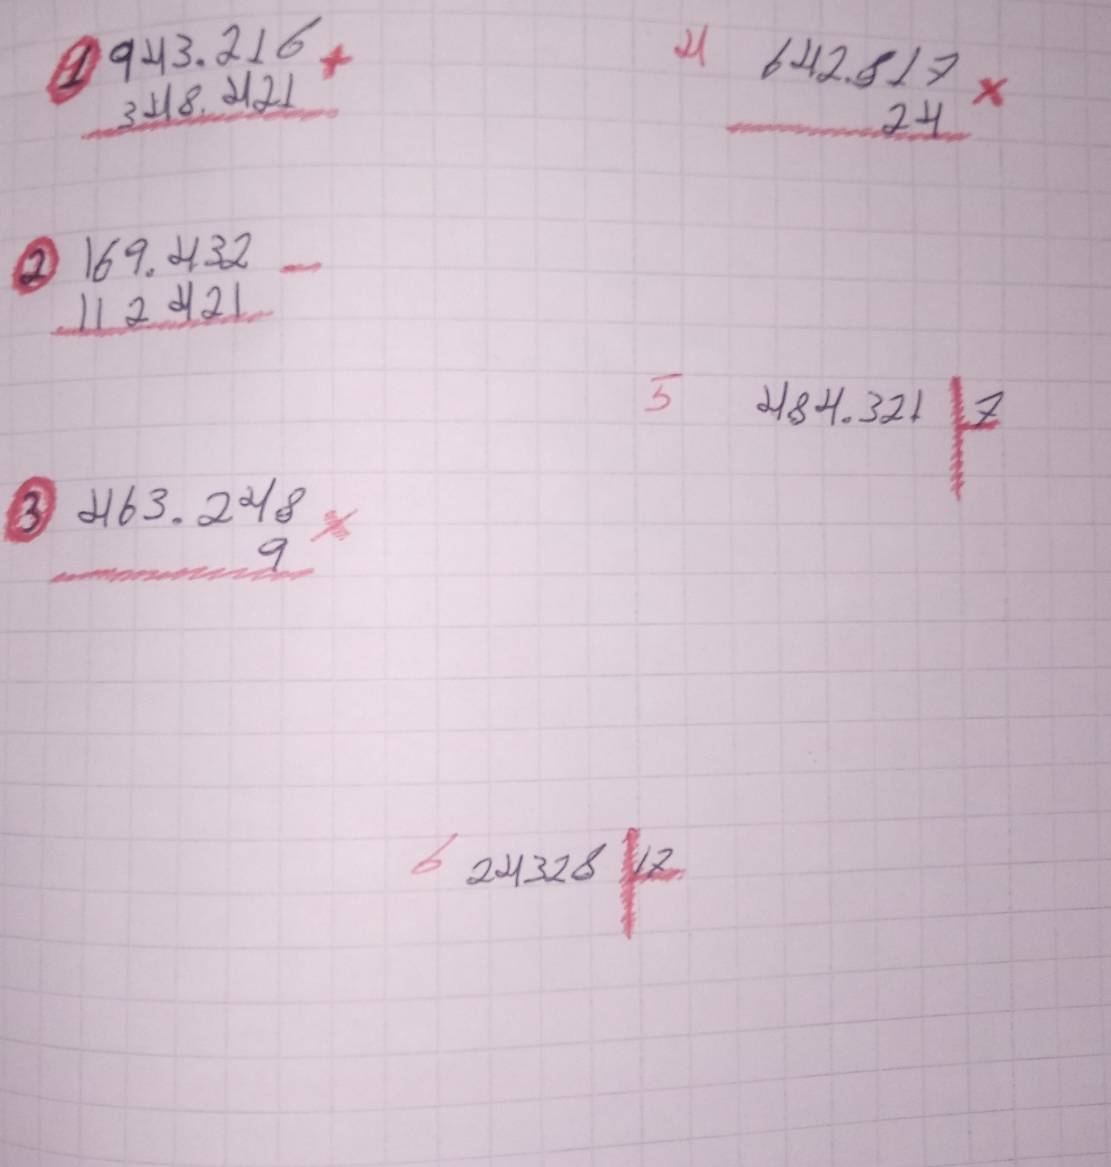 1 943.216 +
348.421
2 169.432 -
112 421
3 463.248 x
9
4 642.817 x
24
5 484.321 7
6 24328 12